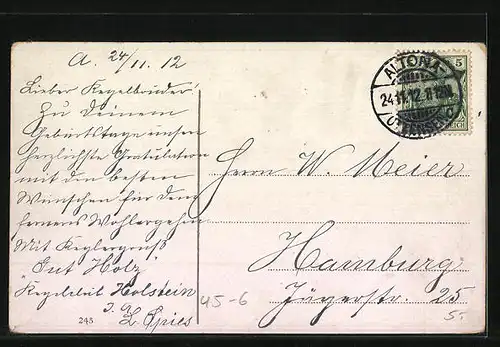 A. 24/11. 12
Lieber Kegelbruder!
Zu Deinem
Geburtstage unsern
herzlichste Gratulation
mit den besten
Wünschen für dem
ferneres Wohlergehn
Mit Keglergruß
"Gut Holz"
Kegelclub Holstein
I. A.
L. Spies
245
45-6
ALTONA
24.11.12. 11-12
OTTENSEN
5
REICH
Herrn W. Meier
Hamburg
Jägerstr. 25
5.-